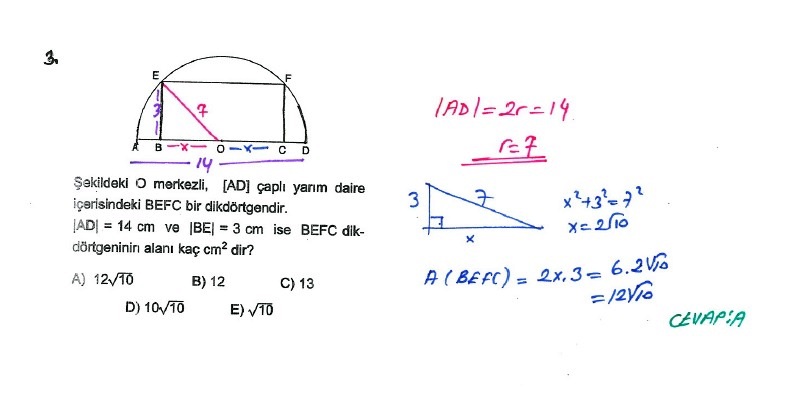 3.
E
F
3
7
A B x O x C D
14
Şekildeki O merkezli, [AD] çaplı yarım daire
içerisindeki BEFC bir dikdörtgendir.
|AD| = 14 cm ve |BE| = 3 cm ise BEFC dik-
dörtgeninin alanı kaç cm² dir?
A) 12√10 B) 12 C) 13
D) 10√10 E) √10
|AD| = 2r = 14
r = 7
3
7
x
x² + 3² = 7²
x = 2√10
A (BEFC) = 2x.3 = 6.2√10
= 12√10
CEVAP: A